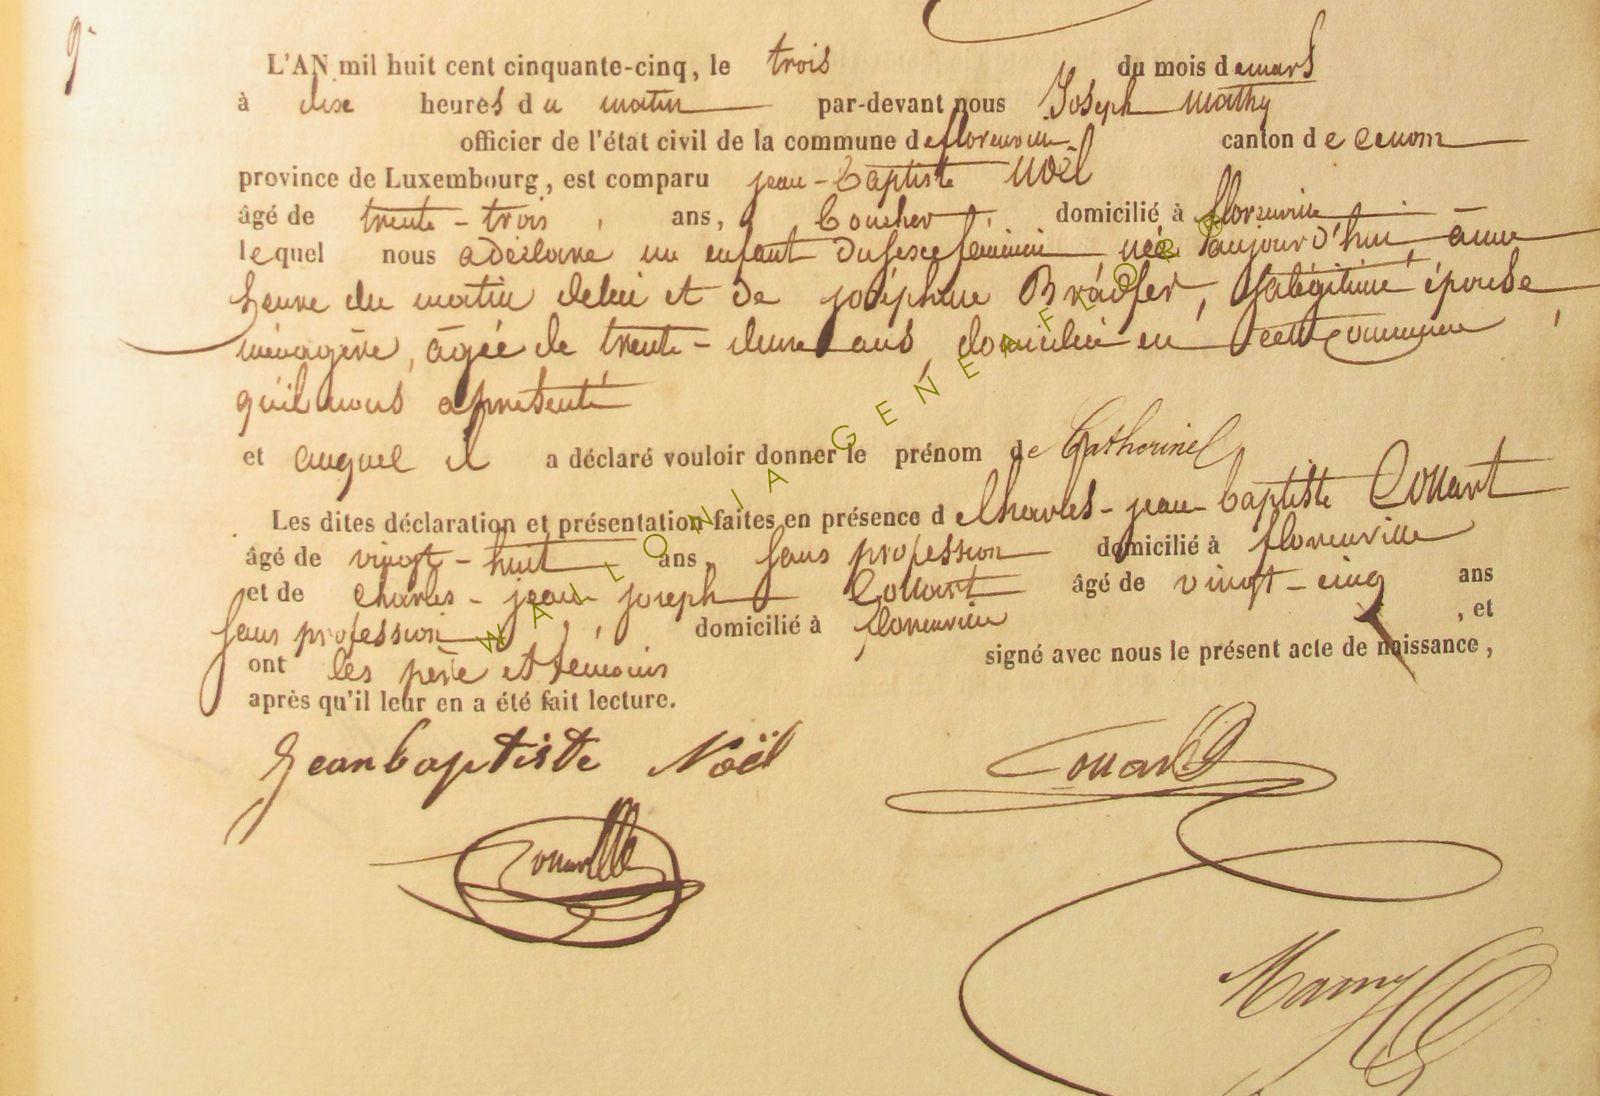 9.
L'AN mil huit cent cinquante-cinq, le trois du mois de mars
à dix heures du matin par-devant nous Joseph Mathy
officier de l'état civil de la commune de florenville canton de
province de Luxembourg, est comparu jean-Baptiste Noël
âgé de trente-trois ans, Boucher, domicilié à florenville
lequel nous a déclaré un enfant du sexe féminin née aujourd'hui, à une
heure du matin de lui et de joséphine, sa légitime épouse
ménagère, âgée de trente-deux ans, domiciliée en cette commune,
qu'il nous a présenté
et auquel il a déclaré vouloir donner le prénom de Catherine
Les dites déclaration et présentation faites en présence de Charles-jean-baptiste Couart
âgé de vingt-huit ans, sans profession domicilié à florenville
et de Charles-jean-joseph Couart âgé de vingt-cinq ans
sans profession, domicilié à florenville, et
ont les père et témoins signé avec nous le présent acte de naissance,
après qu'il leur en a été fait lecture.
Jeanbaptiste Noël Couart
WALLONIA GENEA FLORE